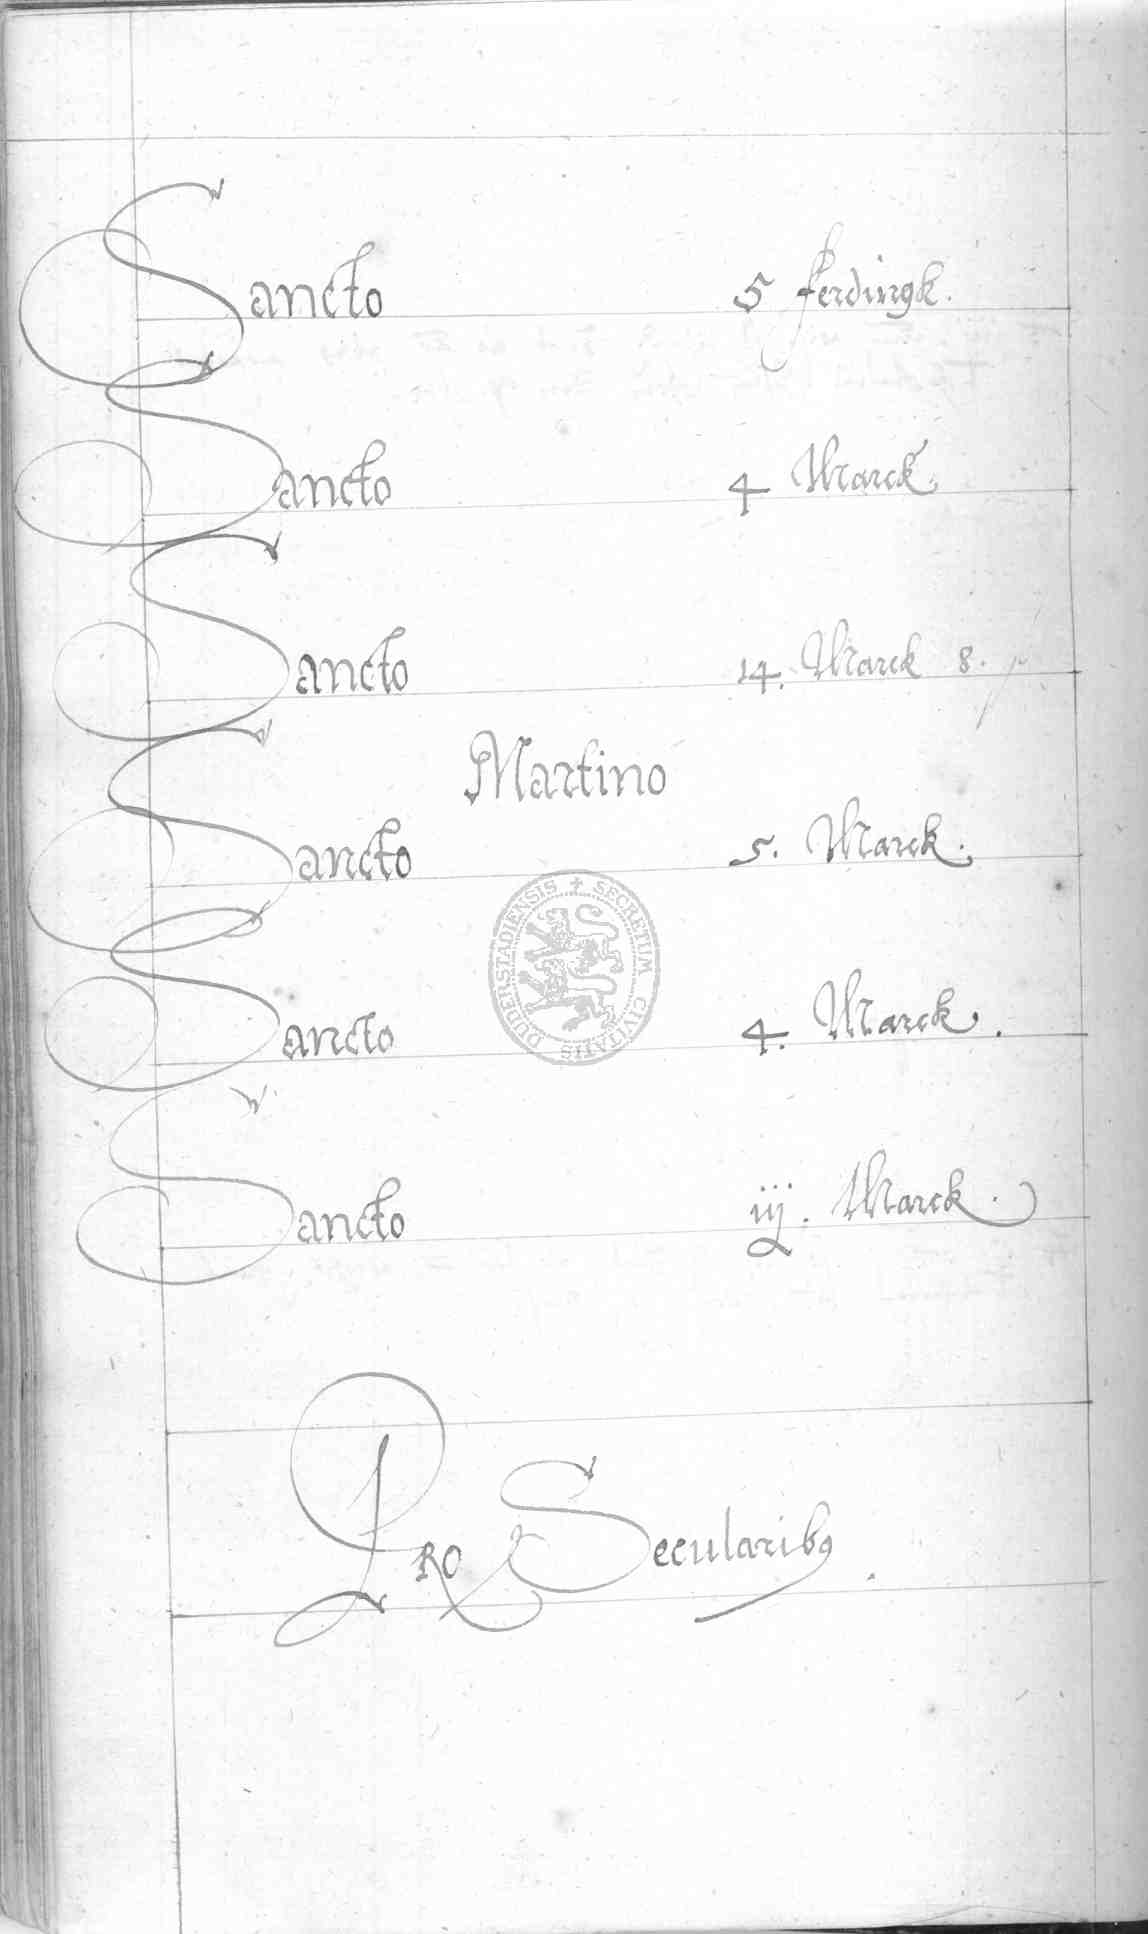 Sancto 5 ferdingk.
Sancto 4 Marck.
Sancto 14. Marck 8.
Martino
Sancto 5. Marck.
SECRETUM CIVITATIS DUDERSTADIENSIS
Sancto 4. Marck.
Sancto iij. Marck.
PRO Secularib9.